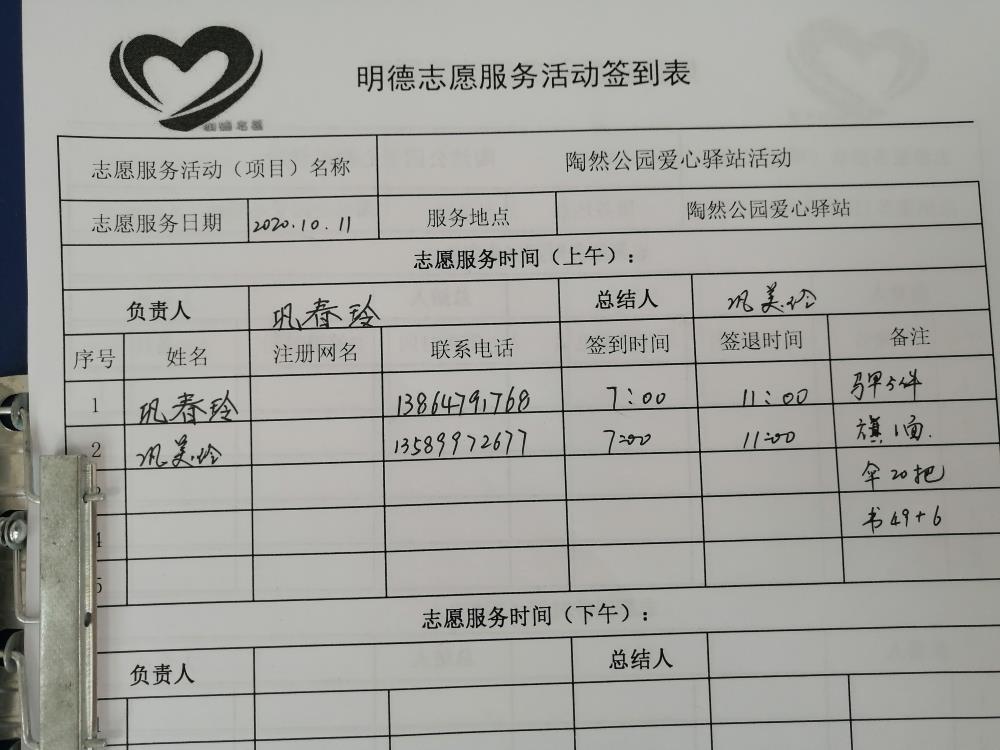 明德志愿服务活动签到表
志愿服务活动（项目）名称 陶然公园爱心驿站活动
志愿服务日期 2020.10.11 服务地点 陶然公园爱心驿站
志愿服务时间（上午）：
负责人 巩春玲 总结人 巩美玲
序号 姓名 注册网名 联系电话 签到时间 签退时间 备注
1 巩春玲 13864791768 7:00 11:00 马甲5件
2 巩美玲 13589972677 7:00 11:00 旗1面.
伞20把
4 书49+6
5
志愿服务时间（下午）：
负责人 总结人